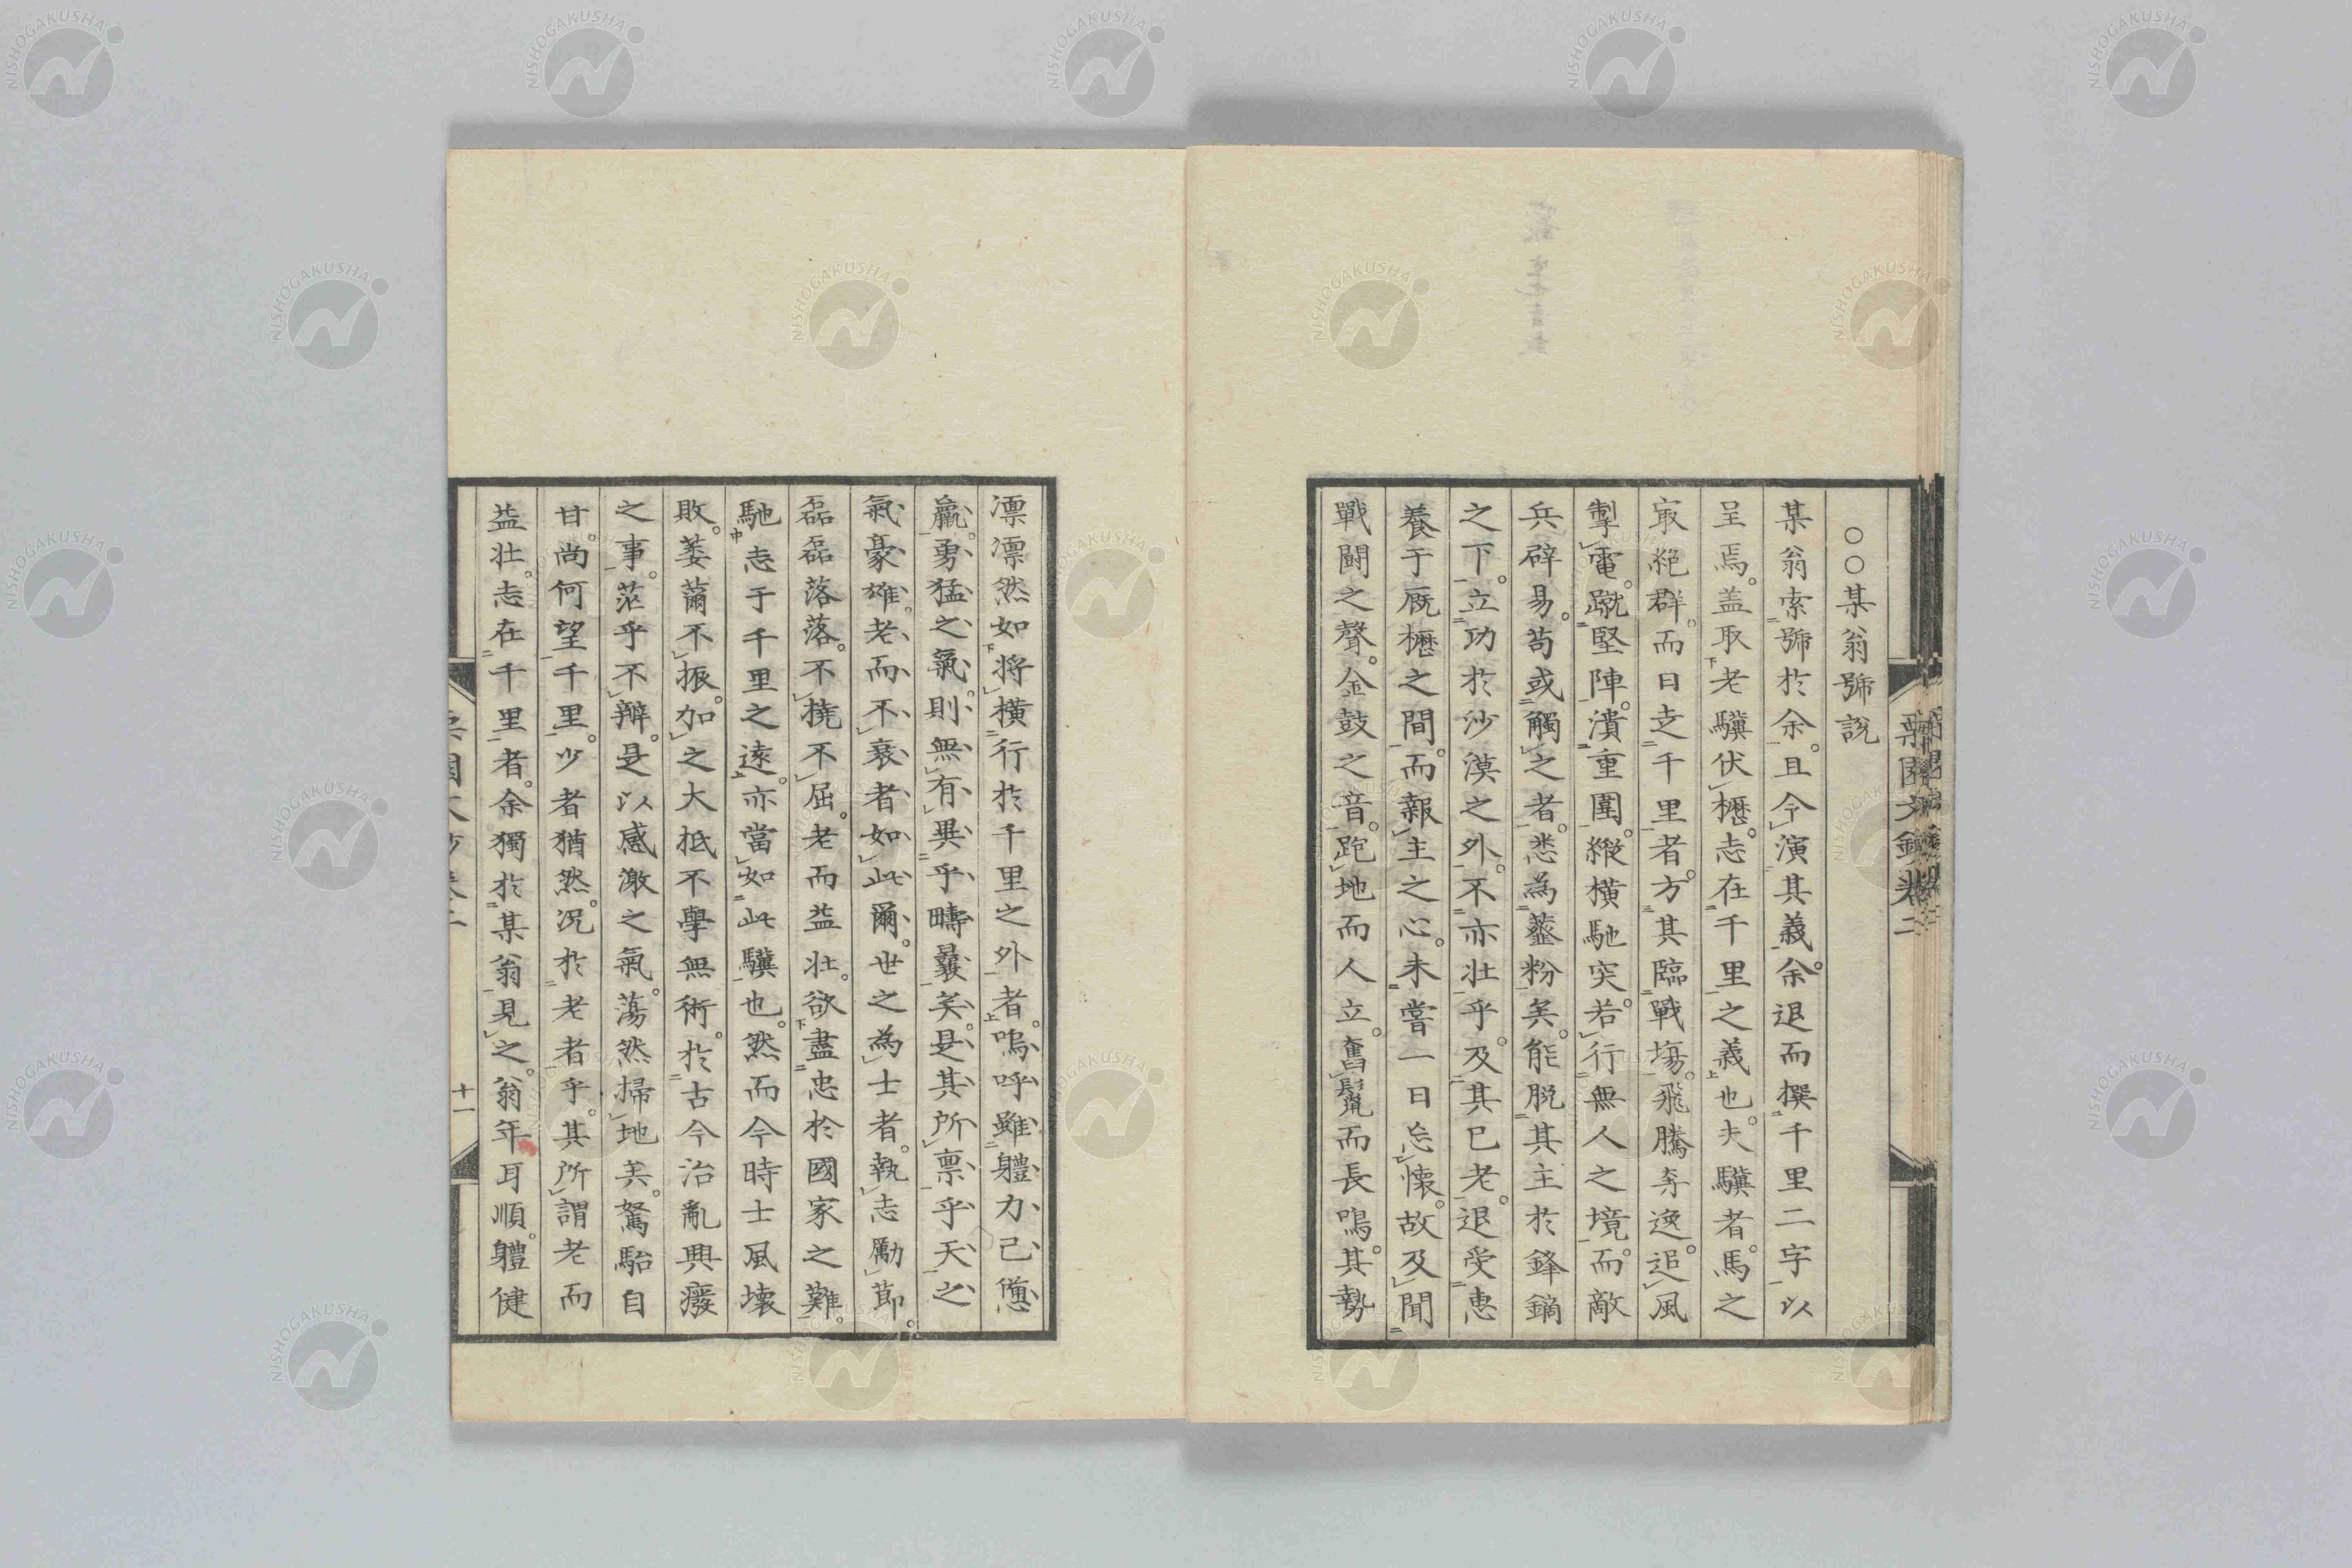 ○○某翁號説
某翁索號於余。且令演其義。余退而撰千里二字以
呈焉。盖取老驥伏櫪。志在千里之義也。夫驥者。馬之
取絕群。而日走千里者。方其臨戰塲。飛騰奔逸。追風
掣電。蹴堅陣。潰重圍。縱橫馳突。若行無人之境。而敵
兵辟易。苟或觸之者。悉為虀粉矣。能脱其主於鋒鏑
之下。立功於沙漠之外。不亦壮乎。及其已老。退受恵
養于厩櫪之間。而報主之心。未嘗一日忘懐。故及聞
戰闘之聲。金鼓之音。跑地而人立。奮鬣而長鳴。其勢
凛凛然如將橫行於千里之外者。嗚呼雖軆力已憊
羸。勇猛之氣。則無有異乎疇曩矣。是其所禀乎天之
氣豪雄。老而不衰者如此爾。世之為士者。執志勵節。
磊磊落落。不撓不屈。老而益壮。欲盡忠於國家之難。
馳志于千里之遠。亦當如此驥也。然而今時士風壊
敗。萎薾不振。加之大抵不學無術。於古今治亂興癈
之事。茫乎不辨。是以感激之氣。蕩然掃地矣。駑駘自
甘。尚何望千里。少者猶然。况於老者乎。其所謂老而
益壮。志在千里者。余獨於某翁見之。翁年耳順。軆健
十一
NISHOGAKUSHA